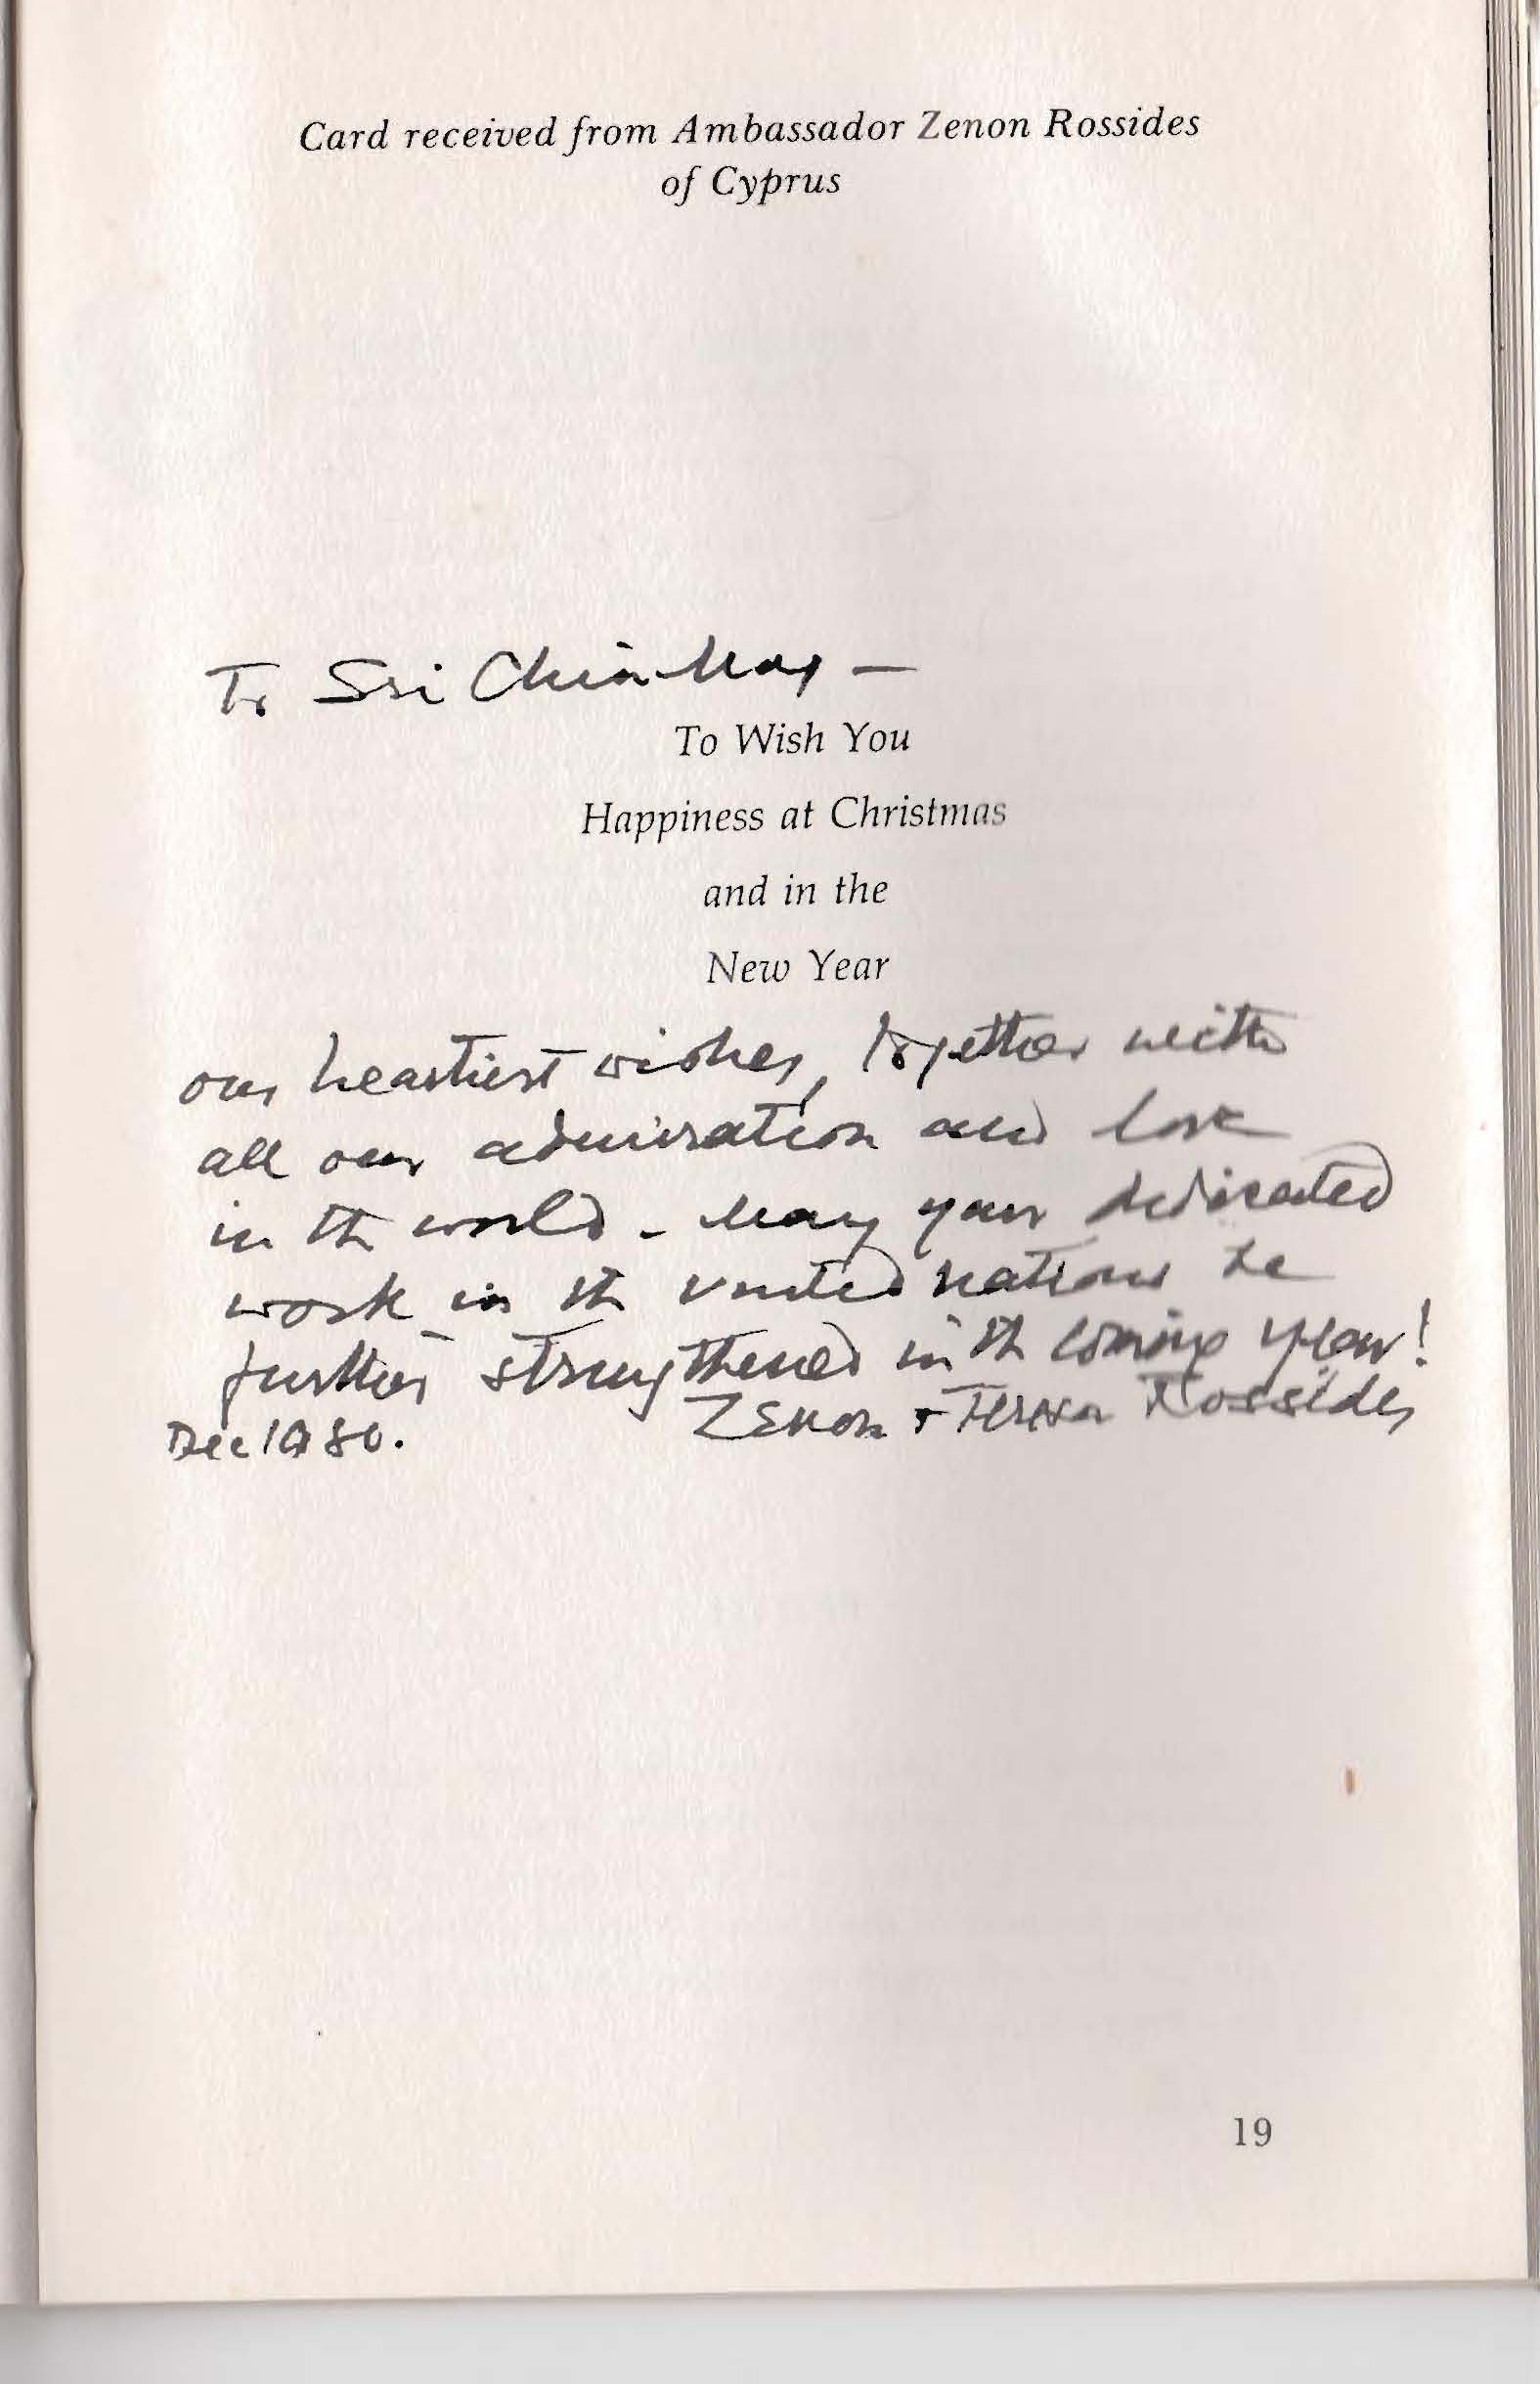 Card received from Ambassador Zenon Rossides
of Cyprus
To Sri Chinmoy —
To Wish You
Happiness at Christmas
and in the
New Year
our heartiest wishes, together with
all our admiration and love
in the world - may your dedicated
work in the United Nations be
further strengthened in the coming year!
Dec 1980. Zenon + Teresa Rossides
19